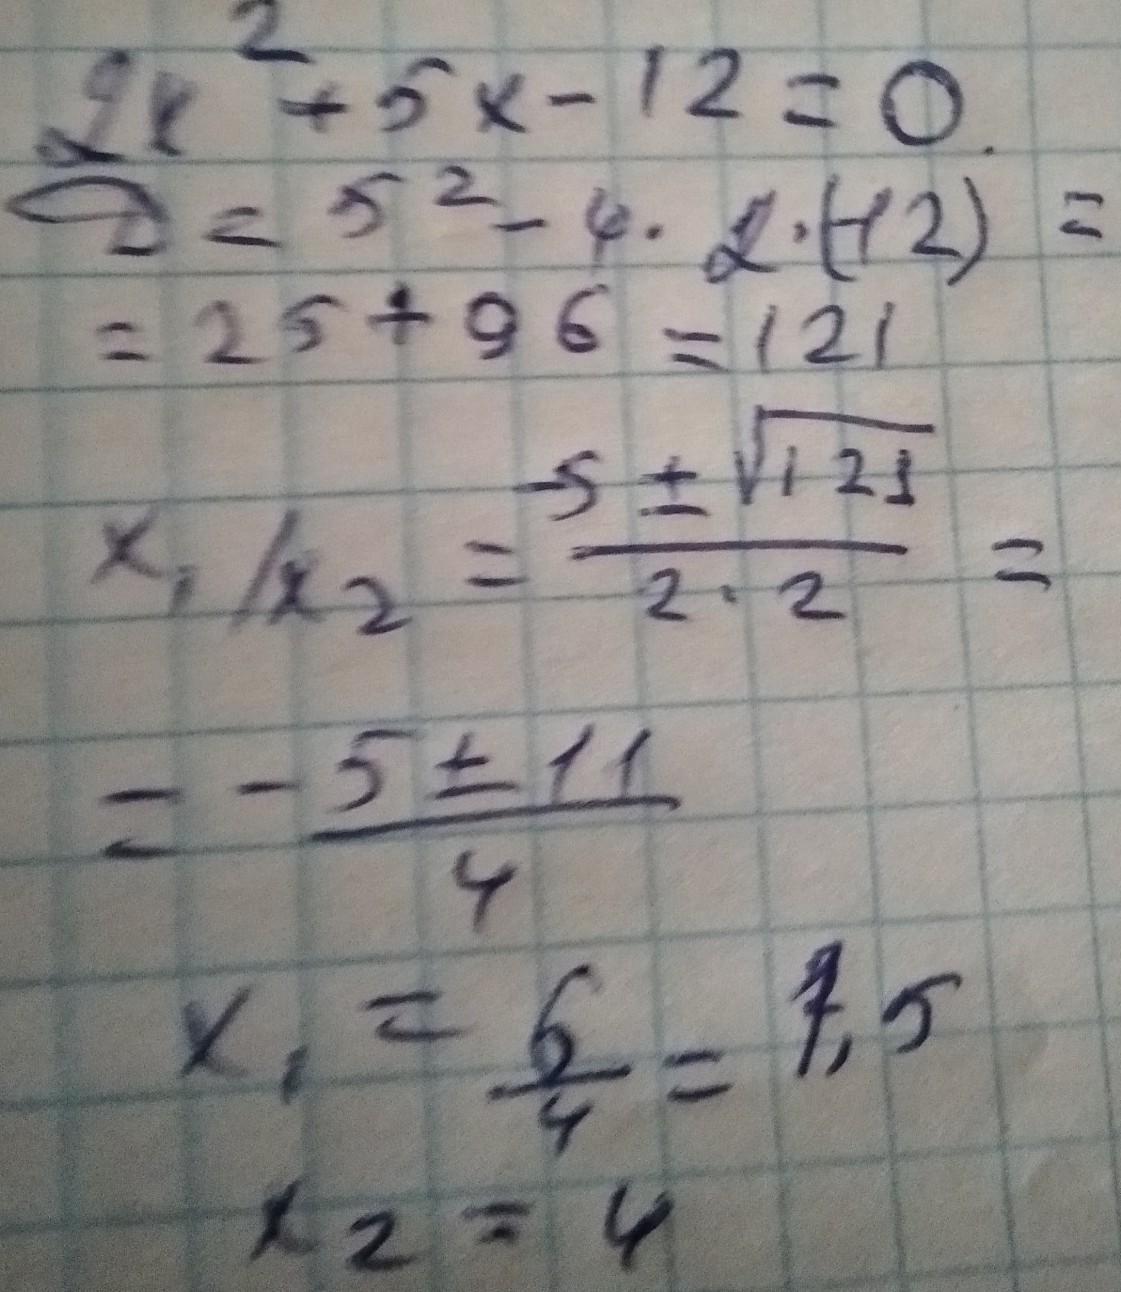 2x² + 5x - 12 = 0.
D = 5² - 4 · 2 · (-12) =
= 25 + 96 = 121
x₁/x₂ = (-5 ± √121)/(2 · 2) =
= (-5 ± 11)/4
x₁ = 6/4 = 1,5
x₂ = 4